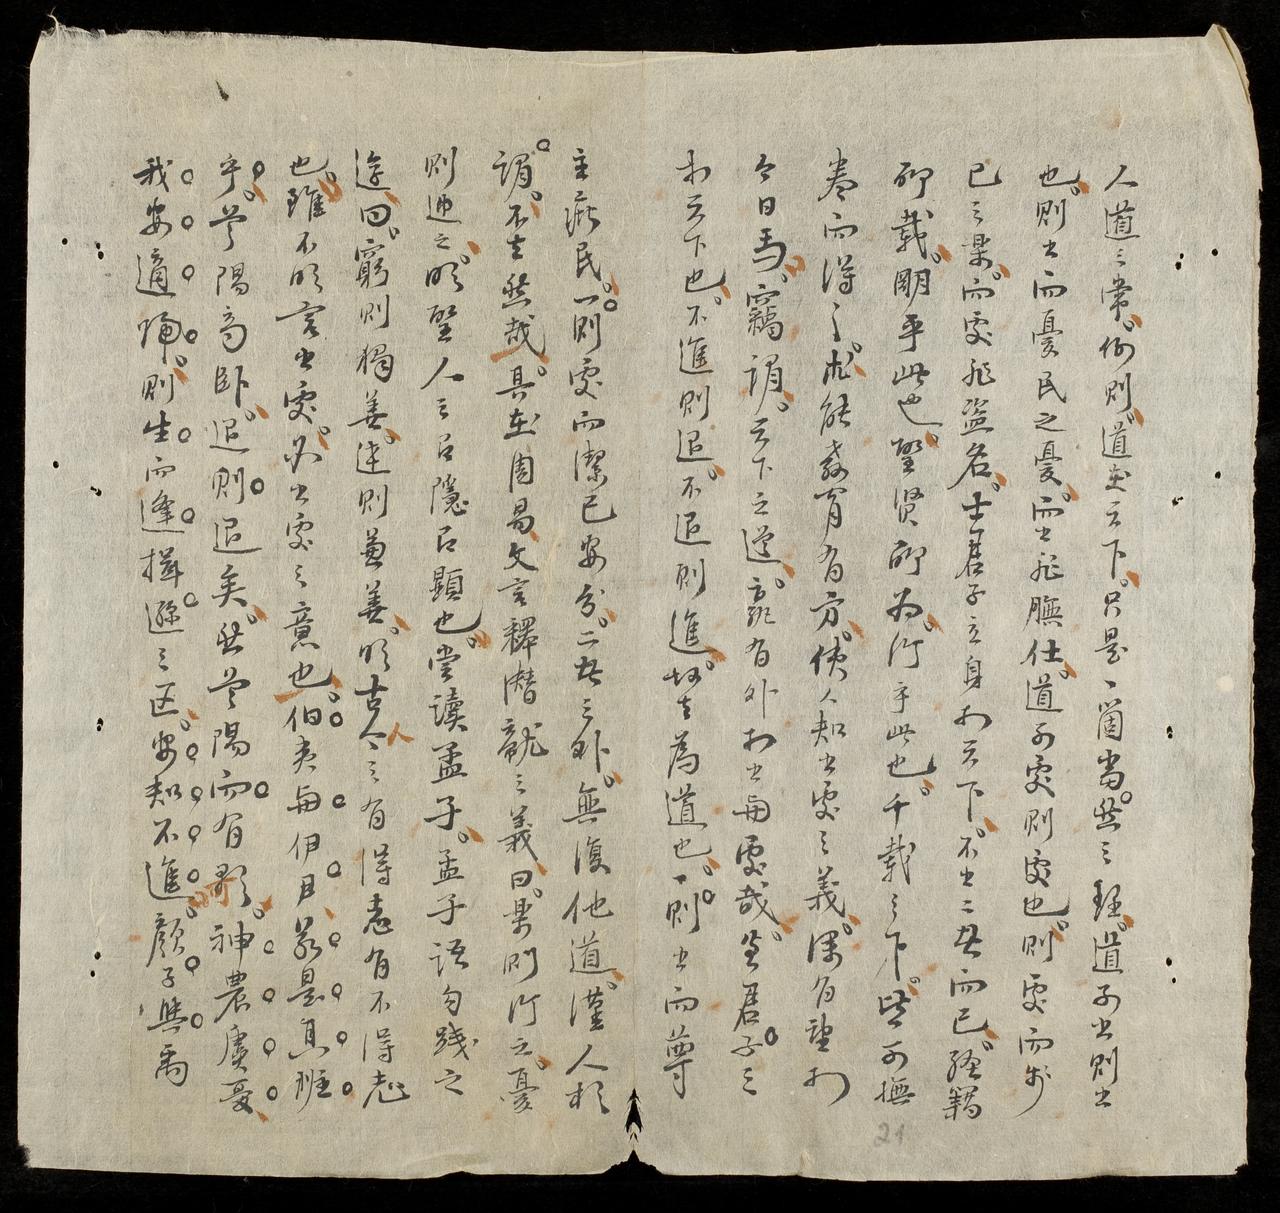 人道之常例則道在天下只是一箇當然之理道可出則出
也則出而憂民之憂而出非膴仕道可處則處也則處而樂
已之樂而處非盜名士君子立身於天下不出二者而已經籍
所載闡乎此也聖賢所為行乎此也千載之下典可撫
卷而得之於能教育有方使人知出處之義深有望於
今日焉竊謂天下之道寧有外於出與處哉盖君子之
於天下也不進則退不退則進故其為道也一則出而尊
主庇民一則處而潔已安分二者之外無復他道謹人於
謂不其然哉具在周易文言釋潛龍之義曰樂則行之憂
則違之明聖人之以隱以顯也嘗讀孟子孟子語句踐之
遊曰窮則獨善達則兼善明古今人之有得志有不得志
也雖不明言出處亦出處之意也伯夷與伊尹若是其班
乎首陽高臥退則退矣然首陽而有歌神農虞夏
我安適歸則生而逢揖遜之區安知不進顏子與禹
21